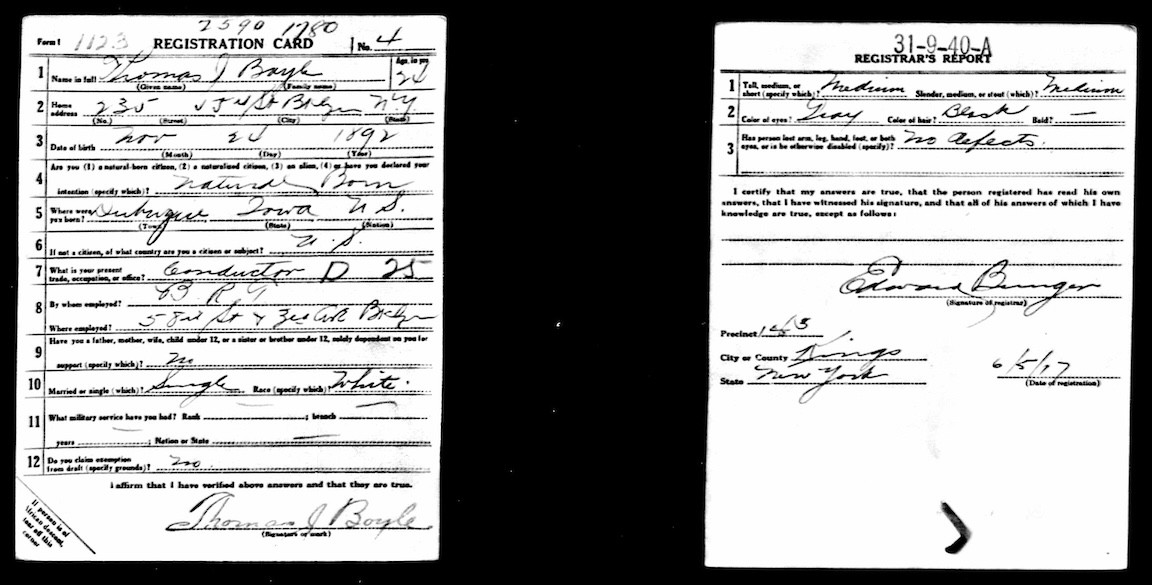 2590 1780
Form 1 1123 REGISTRATION CARD No. 4
1 Name in full Thomas J Boyle Age, in yrs 24
(Given name) (Family name)
2 Home address 235 St Bklyn NY
(No.) (Street) (City) (State)
3 Date of birth Nov 24 1892
(Month) (Day) (Year)
4 Are you (1) a natural-born citizen, (2) a naturalized citizen, (3) an alien, (4) or have you declared your
intention (specify which)? Natural Born
5 Where were you born? Dubuque Iowa U S.
(Town) (State) (Nation)
6 If not a citizen, of what country are you a citizen or subject? U. S.
7 What is your present trade, occupation, or office? Conductor D 25
8 By whom employed? B R T
Where employed? 58th St & 3rd Ave Bklyn
9 Have you a father, mother, wife, child under 12, or a sister or brother under 12, solely dependent on you for
support (specify which)? No
10 Married or single (which)? Single Race (specify which)? White.
11 What military service have you had? Rank ; branch
years ; Nation or State
12 Do you claim exemption from draft (specify grounds)? No.
I affirm that I have verified above answers and that they are true.
Thomas J Boyle
(Signature or mark)
If person is of
African descent,
tear off this
corner
31-9-40-A
REGISTRAR'S REPORT
1 Tall, medium, or short (specify which)? Medium Slender, medium, or stout (which)? Medium
2 Color of eyes? Gray Color of hair? Black Bald? —
3 Has person lost arm, leg, hand, foot, or both eyes, or is he otherwise disabled (specify)? No defects.
I certify that my answers are true, that the person registered has read his own
answers, that I have witnessed his signature, and that all of his answers of which I have
knowledge are true, except as follows:
Edward Bunger
(Signature of registrar)
Precinct 143
City or County Kings
State New York
6/5/17
(Date of registration)